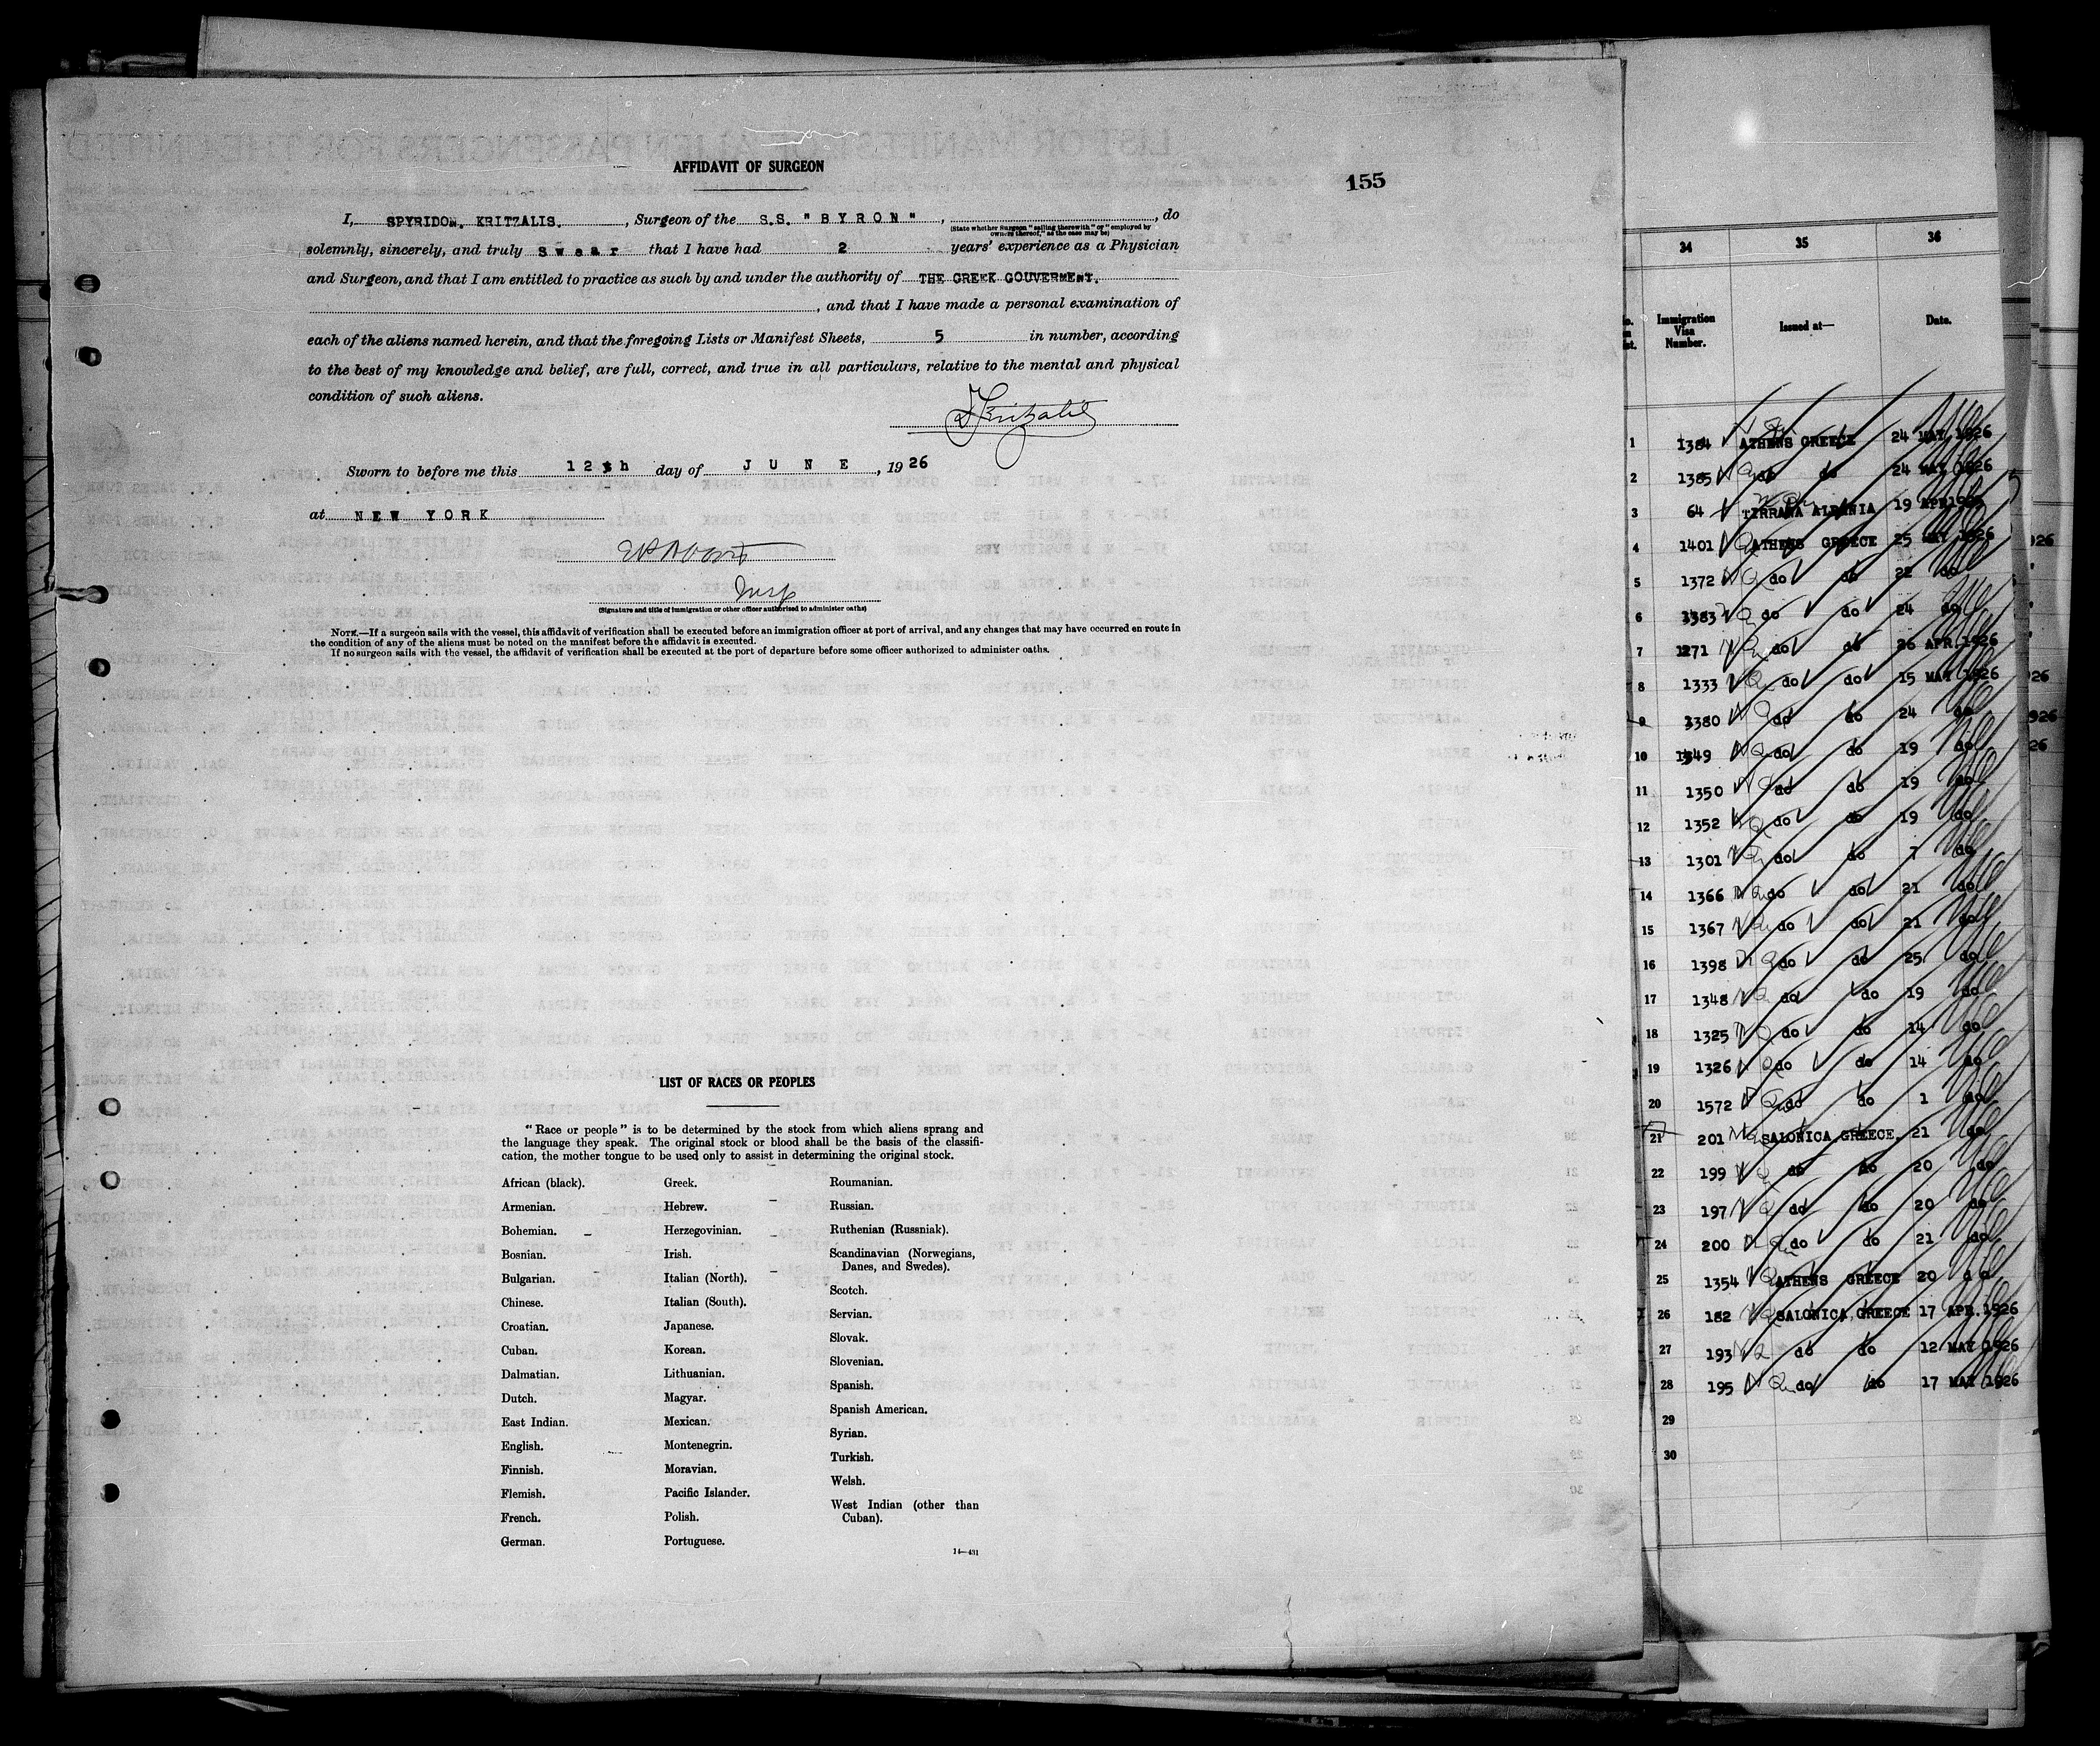 AFFIDAVIT OF SURGEON
155
I, SPYRIDON. KRITZALIS. , Surgeon of the S.S. "BYRON" , , do
(State whether Surgeon "sailing therewith" or "employed by
owners thereof," as the case may be)
solemnly, sincerely, and truly swear that I have had 2 years' experience as a Physician
and Surgeon, and that I am entitled to practice as such by and under the authority of THE GREEK GOUVERMENT.
, and that I have made a personal examination of
each of the aliens named herein, and that the foregoing Lists or Manifest Sheets, 5 in number, according
to the best of my knowledge and belief, are full, correct, and true in all particulars, relative to the mental and physical
condition of such aliens.
SKritzalis
Sworn to before me this 12th day of JUNE , 1926
at NEW YORK
Insp
(Signature and title of immigration or other officer authorized to administer oaths)
NOTE.—If a surgeon sails with the vessel, this affidavit of verification shall be executed before an immigration officer at port of arrival, and any changes that may have occurred en route in
the condition of any of the aliens must be noted on the manifest before the affidavit is executed.
If no surgeon sails with the vessel, the affidavit of verification shall be executed at the port of departure before some officer authorized to administer oaths.
LIST OF RACES OR PEOPLES
"Race or people" is to be determined by the stock from which aliens sprang and
the language they speak. The original stock or blood shall be the basis of the classifi-
cation, the mother tongue to be used only to assist in determining the original stock.
African (black).
Armenian.
Bohemian.
Bosnian.
Bulgarian.
Chinese.
Croatian.
Cuban.
Dalmatian.
Dutch.
East Indian.
English.
Finnish.
Flemish.
French.
German.
Greek.
Hebrew.
Herzegovinian.
Irish.
Italian (North).
Italian (South).
Japanese.
Korean.
Lithuanian.
Magyar.
Mexican.
Montenegrin.
Moravian.
Pacific Islander.
Polish.
Portuguese.
Roumanian.
Russian.
Ruthenian (Russniak).
Scandinavian (Norwegians,
Danes, and Swedes).
Scotch.
Servian.
Slovak.
Slovenian.
Spanish.
Spanish American.
Syrian.
Turkish.
Welsh.
West Indian (other than
Cuban).
14—431
34 35 36
Immigration
Visa
Number.
Issued at—
Date.
1 1384 ATHENS GREECE 24 MAY 1926
2 1385 do do 24 MAY 1926
3 64 TIRRANA ALBANIA 19 APR 1926
4 1401 ATHENS GREECE 25 MAY 1926
5 1372 do do 22 do
6 1383 do do 24 do
7 1271 do do 26 APR. 1926
8 1333 do do 15 MAY 1926
9 1380 do do 24 do
10 1349 do do 19 do
11 1350 do do 19 do
12 1352 do do 19 do
13 1301 do do 7 do
14 1366 do do 21 do
15 1367 do do 21 do
16 1398 do do 25 do
17 1348 do do 19 do
18 1325 do do 14 do
19 1326 do do 14 do
20 1572 do do 1 do
21 201 SALONICA GREECE. 21 do
22 199 do do 20 do
23 197 do do 20 do
24 200 do do 21 do
25 1354 ATHENS GREECE 20 do
26 182 SALONICA, GREECE 17 APR. 1926
27 193 do do 12 MAY 1926
28 195 do do 17 MAY 1926
29
30